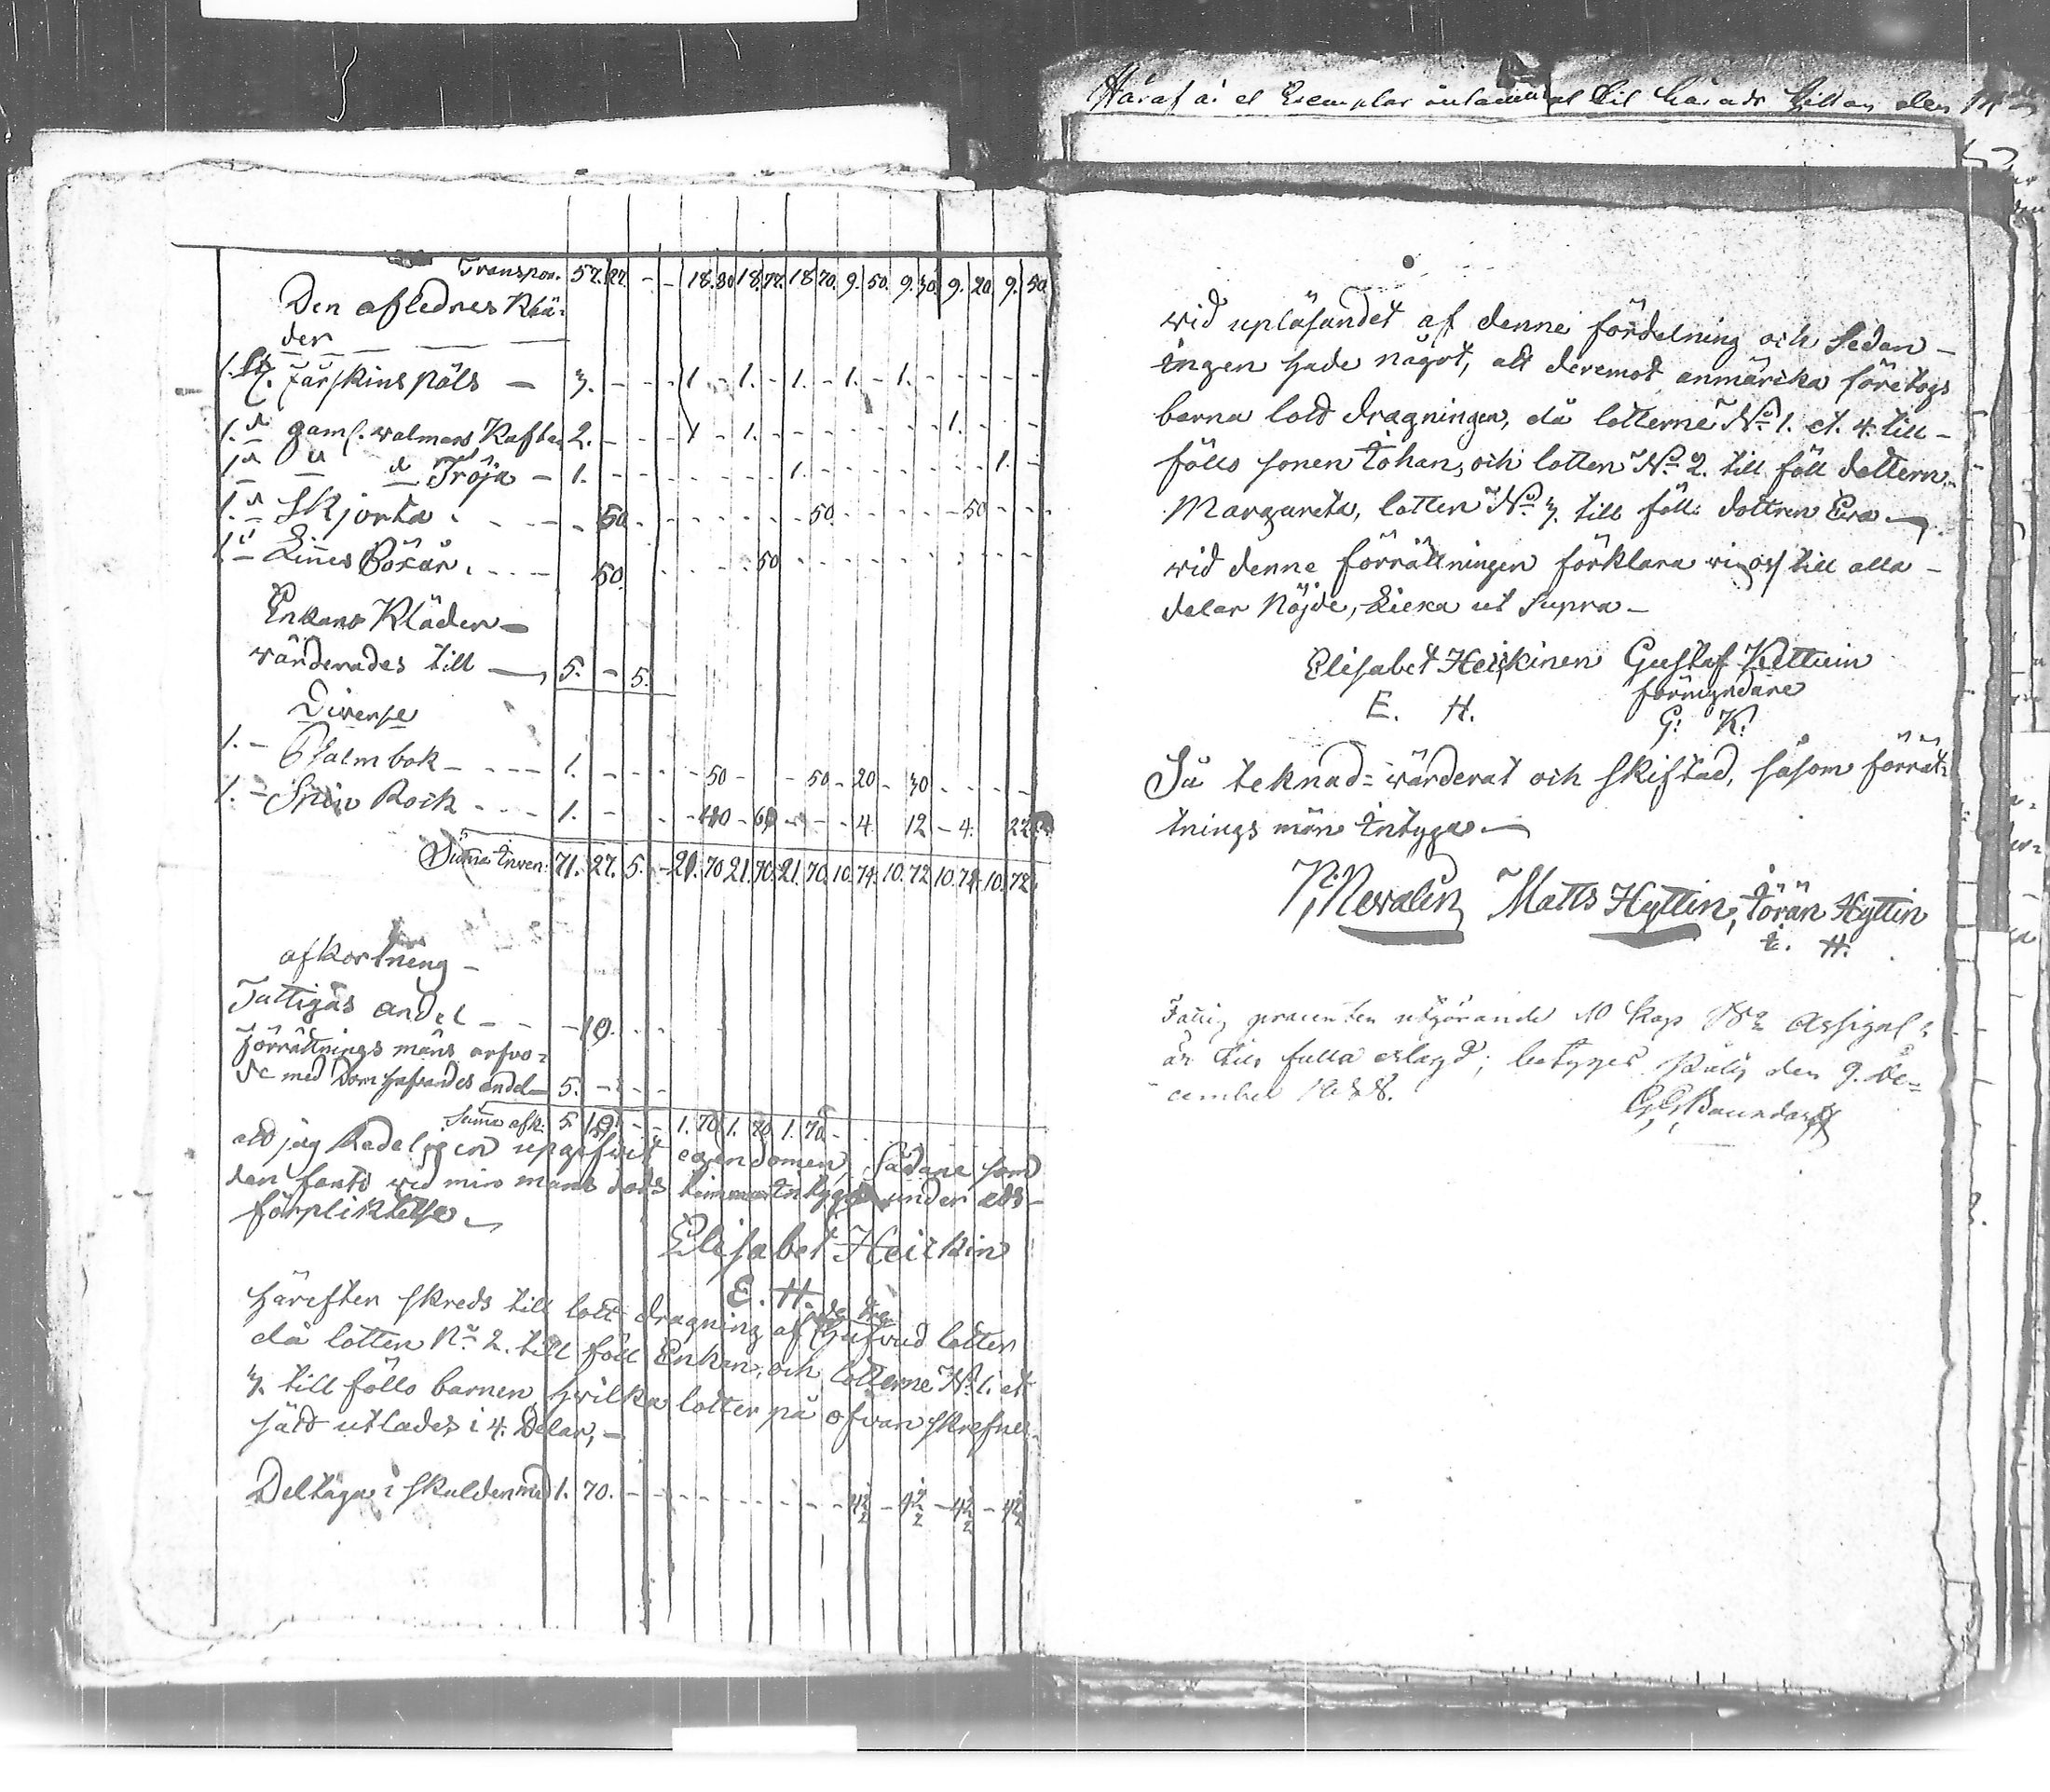 Transpor. 57. 27. - - 18. 80 18. 77. 18 70. 9. 50. 9. 30. 9. 20. 9. 50.
Den aflednes Klä-
der
1. st. Fårskins päls - 3. - - - 1 - 1. - 1. - 1. - 1. - - - -
1. d gaml. walmars Kaftan 2. - - - 1 - 1. - - - - - - 1. - - -
1 d " d Tröja - 1. - - - - - - 1. - - - - - - 1. -
1. d Skjorta . - - - 50. - - - - - 50. - - - - 50 - - -
1. d Linnes Böxår . - - - 50. - - - 50 - - - - - - - -
Enkans Kläder -
wärderades till - 5. - 5.
Diverse
1. - Psalmbok - - - - 1. - - - - 50 - - 50 - 20 - 30 - - - -
1. - Rock - - - 1. - - - - - - 4. 12 - 4. 22
Summa Inven: 71. 27. 5. - 21. 70 21. 70. 21. 70. 10. 74. 10. 72 10. 74 10. 72.
afkortning -
Fattigas andel - - - 10. - -
Förrättnings mäns arfvo-
de med Domhafvandes andel - 5. - - -
Summa afk. 5. 10. - - 1. 70 1. 70 1. 70 -
att jag Redeligen upgifvit egendomen, sådane som
den fants wid min mans död under eds-
förpliktelse -
Elisabet Heickin
E. H.
Härefter skreds till lott dragning af de tre hufwud lotter
då lotten No. 2. till föll Enkan, och lotterne No. 1. et
3. till föllo barnen, hwilka lotter på ofwan skrefne
sätt utlades i 4. Delar, -
Deltaga i skulden med 1. 70. - - - - - - - - 42 1/2 - 42 1/2 - 42 1/2 - 42 1/2
Häraf är et Exemplar inlämnat til härads Rättan den
wid upläsandet af denne fördelning och sedan -
ingen hade något, att deremot anmärcka företogs
barna lott dragningen, då lotterne No. 1. et. 4. till -
föllo sonen Johan, och lotten No. 2. till föll dottern
Margareta, lotten No. 3. till föll dottren Eva -
wid denne förrättningen förklara wi oss till alla -
delar Nöjde, Lieka ut supra -
Elisabet Heickinen Gustaf Kettuin
förmyndare
E. H. G: K:
Så teknad- wärderat och skiftad, såsom förrät-
tnings män intyga -
P. Newalin, Matts Hyttin, Jöran Hyttin
I. H.
Fattig procenten utgörande 10 Kop Assign:
är till fulla erlagd; betyges den 9. De-
cember